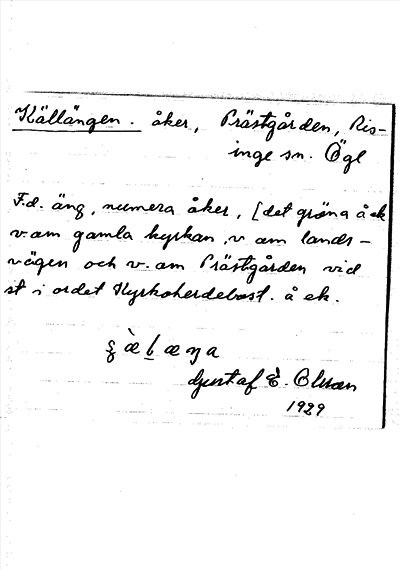 Källängen. åker, Prästgården, Ris-
inge sn. Ögl
F.d. äng, numera åker, [det gröna å ek
v. om gamla kyrkan, v om lands-
vägen och v. om Prästgården vid
st i ordet Kyrkoherdebost. å ek.
Gustaf E. Olsson
1929